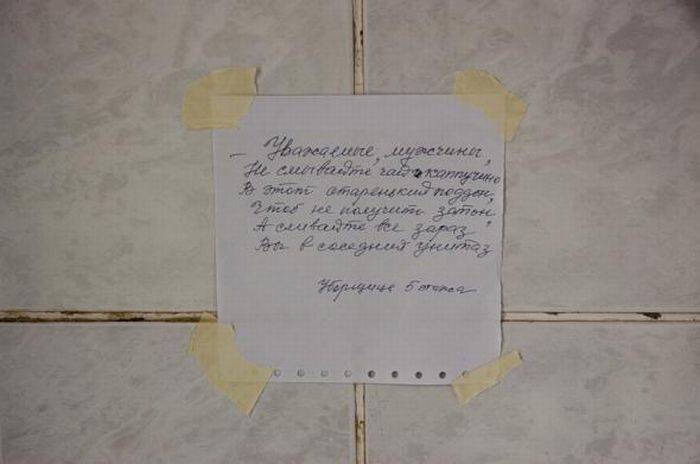 – Уважаемые, мужчины,
Не смывайте чай, каппучино
В этот старенький поддон,
Чтоб не получить затон
А сливайте все зараз
Вы в соседний унитаз
Уборщица 5 этажа